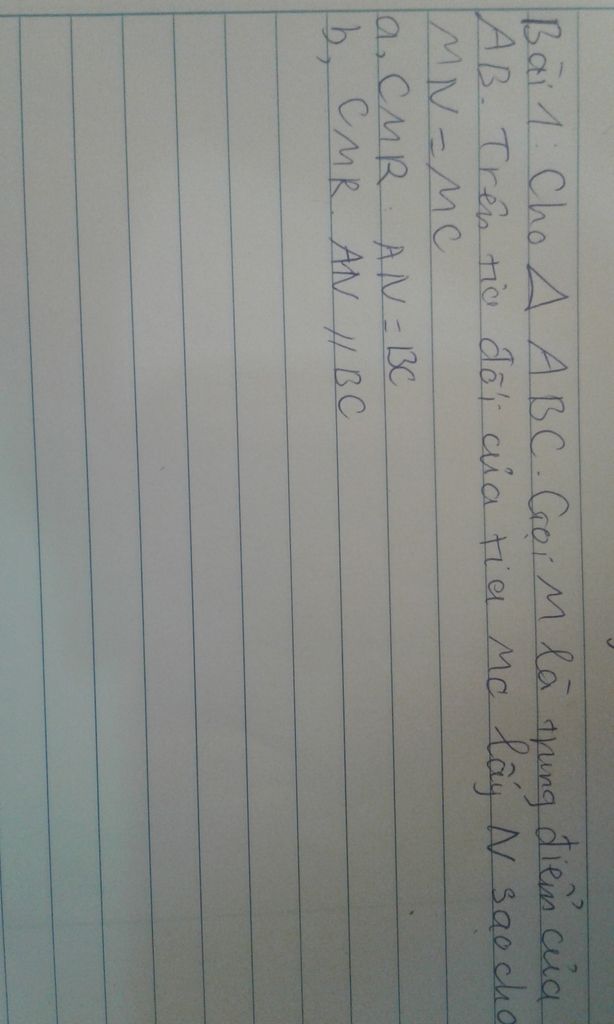 Bài 1: Cho Δ ABC. Gọi M là trung điểm của
AB. Trên tia đối của tia MC lấy N sao cho
MN = MC
a, CMR: AN = BC
b, CMR. AN // BC